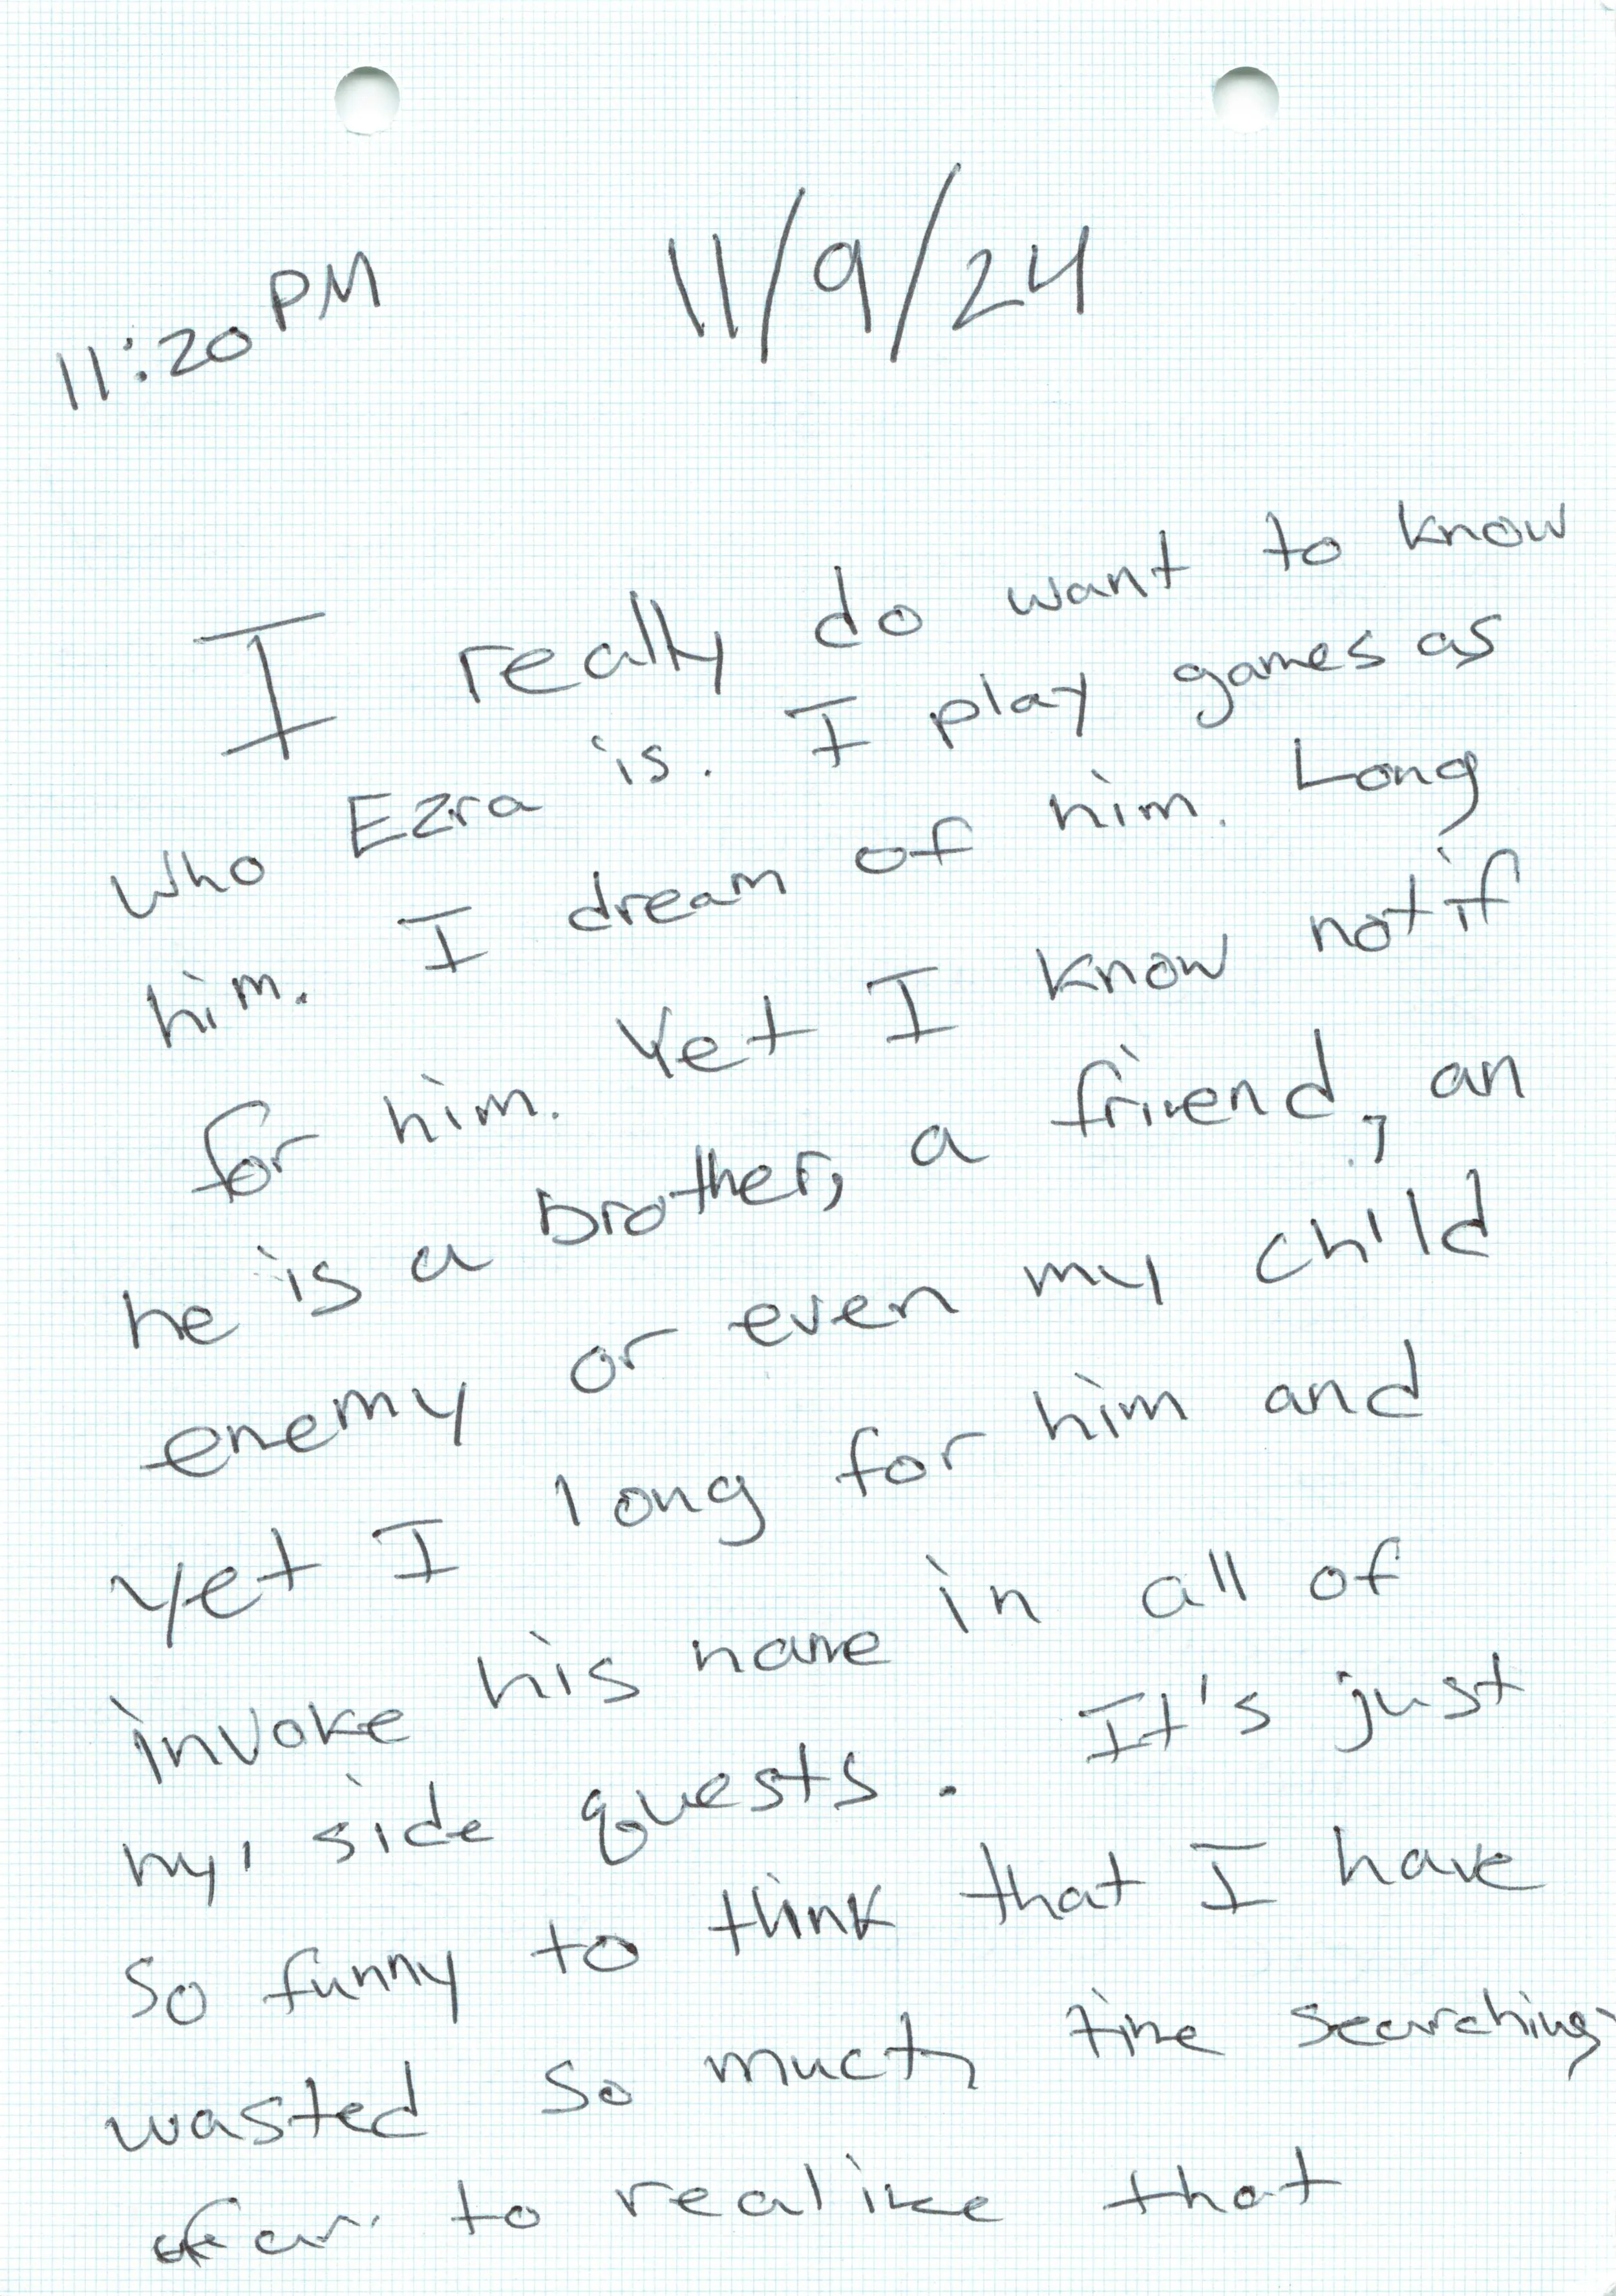 11:20 PM 11/9/24
I really do want to know
who Ezra is. I play games as
him. I dream of him. Long
for him. Yet I know not if
he is a brother, a friend, an
enemy or even my child
yet I long for him and
invoke his name in all of
my side quests. It's just
so funny to think that I have
wasted so much time searching
to realize that